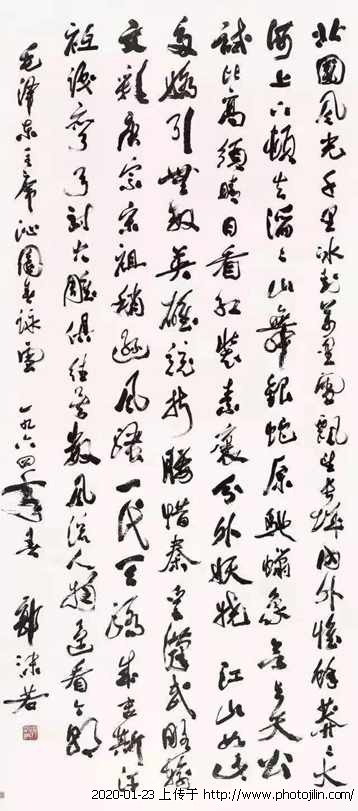 北國風光千里冰封萬里雪飄望長城內外惟餘莽々大
河上下頓失滔々山舞銀蛇原馳蠟象欲與天公
試比高須晴日看紅裝素裹分外妖嬈 江山如此
多嬌引無數英雄競折腰惜秦皇漢武略輸
文彩唐宗宋祖稍遜風騷一代天驕成吉斯汗
祇識彎弓射大雕俱往矣數風流人物還看今朝
毛澤東主席沁園春詠雪 一九六四年春 郭沫若
2020-01-23 上传于 http://www.photojilin.com/